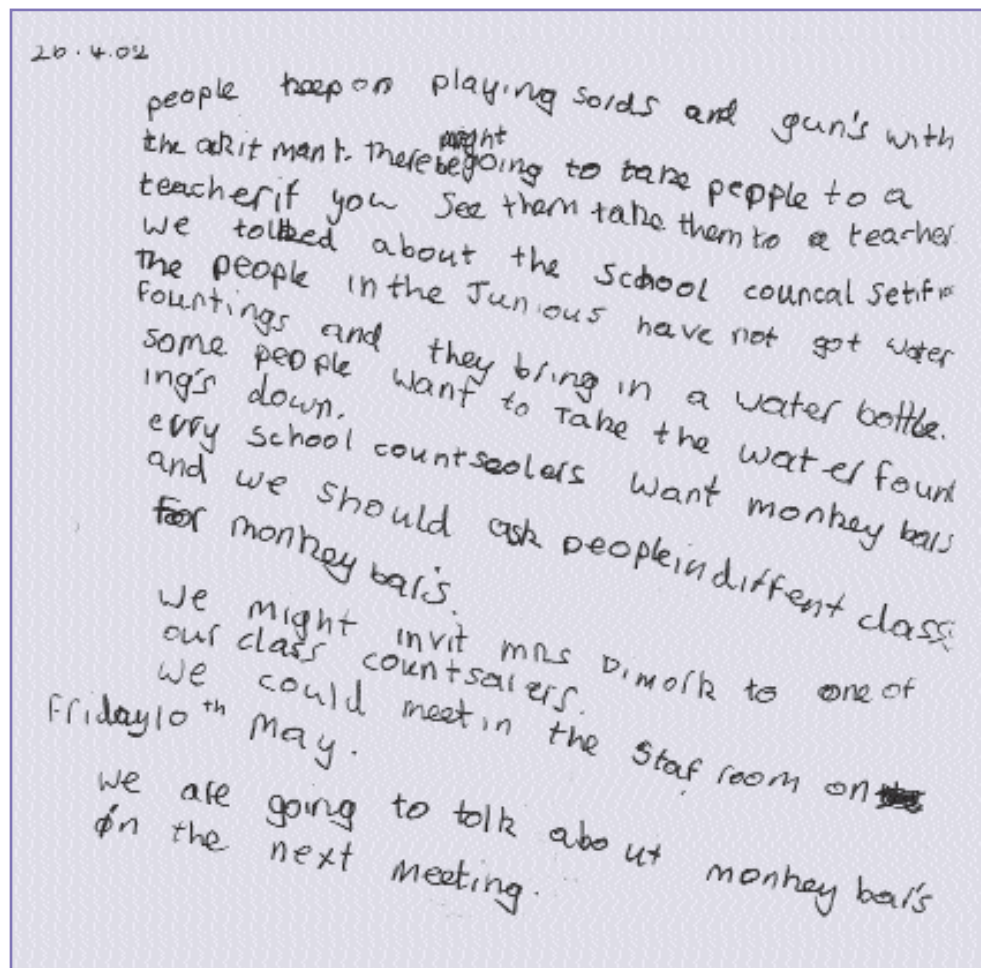 26.4.02
people keep on playing solds and gun's with
the akit ment. there might be going to take pepple to a
teacher if you see them take them to a teacher.
we tolked about the school councal
The people in the Junious have not got water
fountings and they bring in a water bottle.
some people want to Take the water fount
ing's down.
evry school countseolers want monkey bars
and we should ask people in diffent class
for monkey bar's.
we might invit mrs Dimork to one of
our class countsalers.
we could meet in the staf room on
Friday 10th May.
we are going to tolk about monkey bar's
on the next meeting.